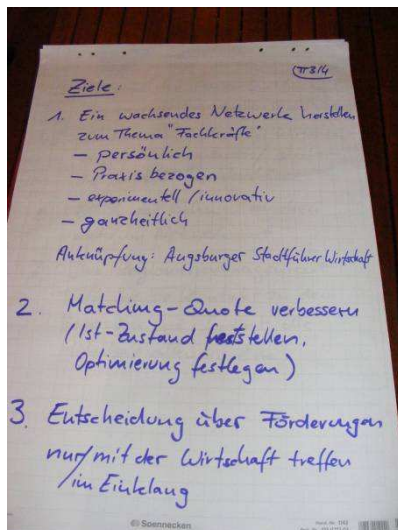 Ziele:
1. Ein wachsendes Netzwerk herstellen
zum Thema "Fachkräfte"
– persönlich
– Praxis bezogen
– experimentell / innovativ
– ganzheitlich
Anknüpfung: Augsburger Stadtführer Wirtschaft
2. Matching-Quote verbessern
(Ist-Zustand feststellen,
Optimierung festlegen)
3. Entscheidung über Förderungen
nur/mit der Wirtschaft treffen
/im Einklang
© Soennecken